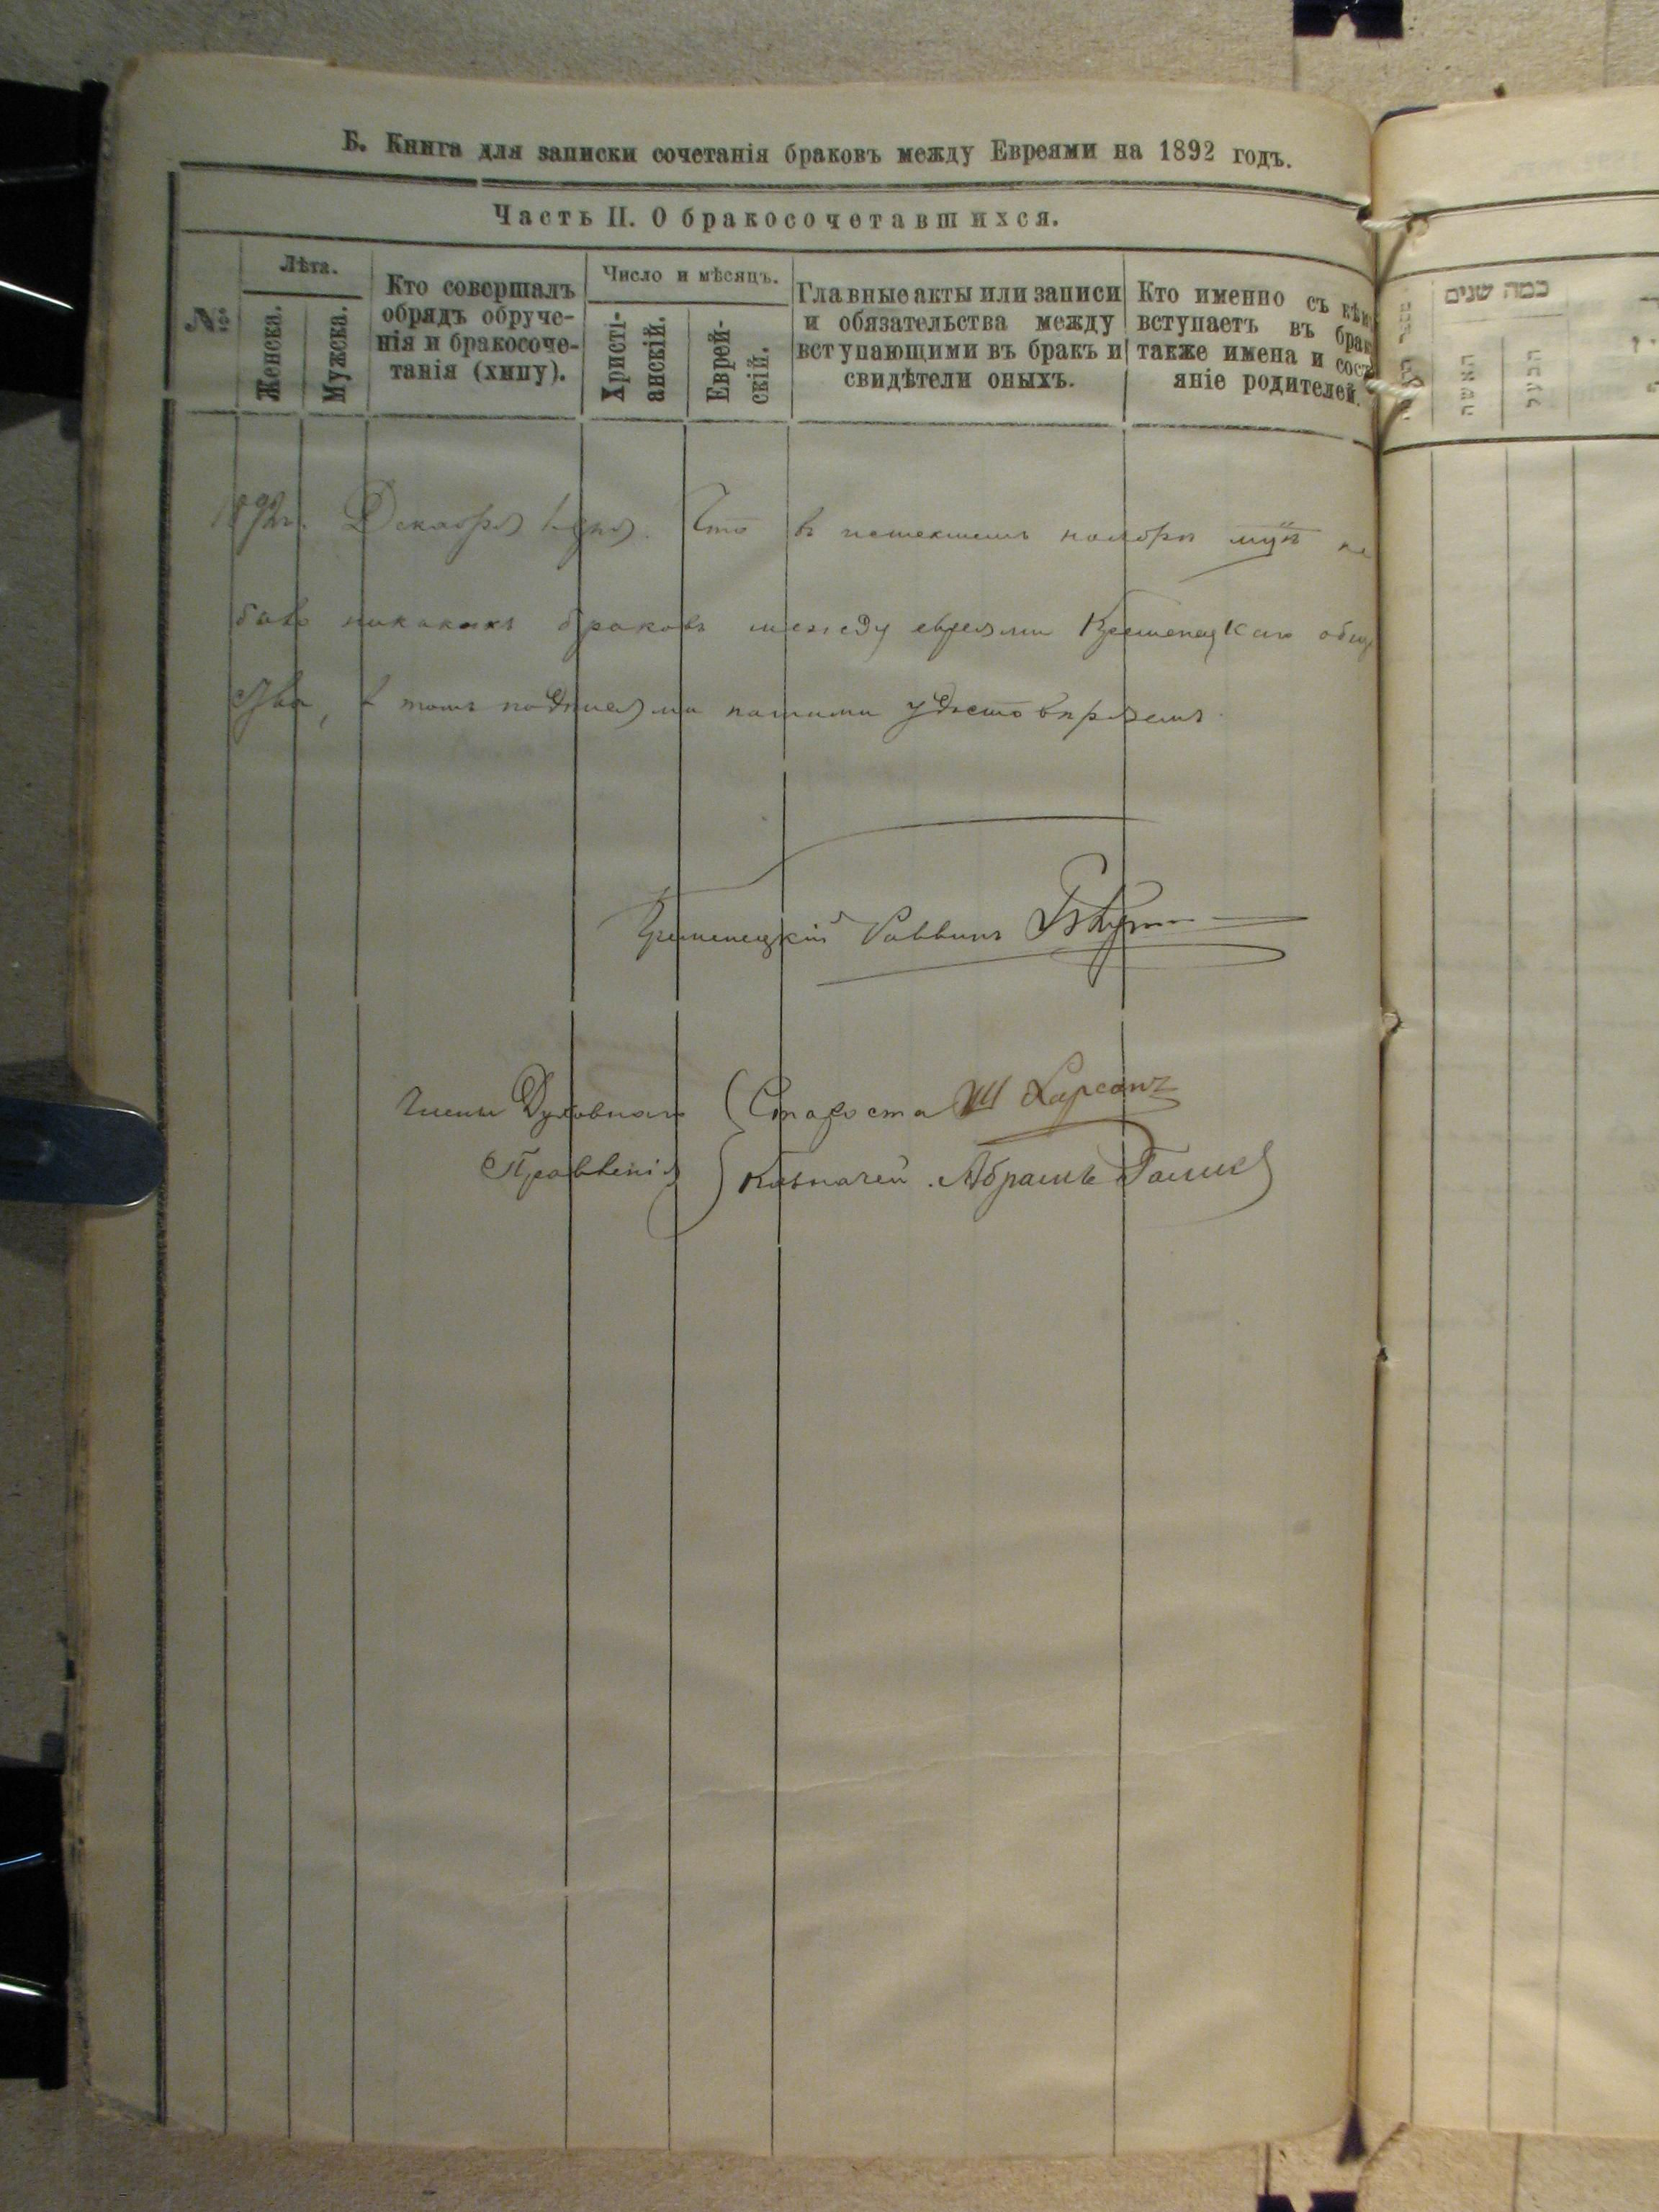 Б. Книга для записки сочетанія браковъ между Евреями на 1892 годъ.
Часть II. О бракосочетавшихся.
№
Лѣта.
Женска.
Мужска.
Кто совершалъ
обрядъ обруче-
нія и бракосоче-
танія (хипу).
Число и мѣсяцъ.
Христі-
анскій.
Еврей-
скій.
Главные акты или записи
и обязательства между
вступающими въ бракъ и
свидѣтели оныхъ.
Кто именно съ кѣм
вступаетъ въ брак
также имена и сост
яніе родителей.
כמה שנים
1892 г. Декабря 1 дня. Что в истекшемъ ноябрѣ не
было никакихъ браковъ между евреями Кременецкаго общ
ства, в томъ подписями нашими удостовѣряемъ.
Кременецкій Раввинъ
Члены Духовнаго Староста Ш
Правленія Казначей Абрамъ